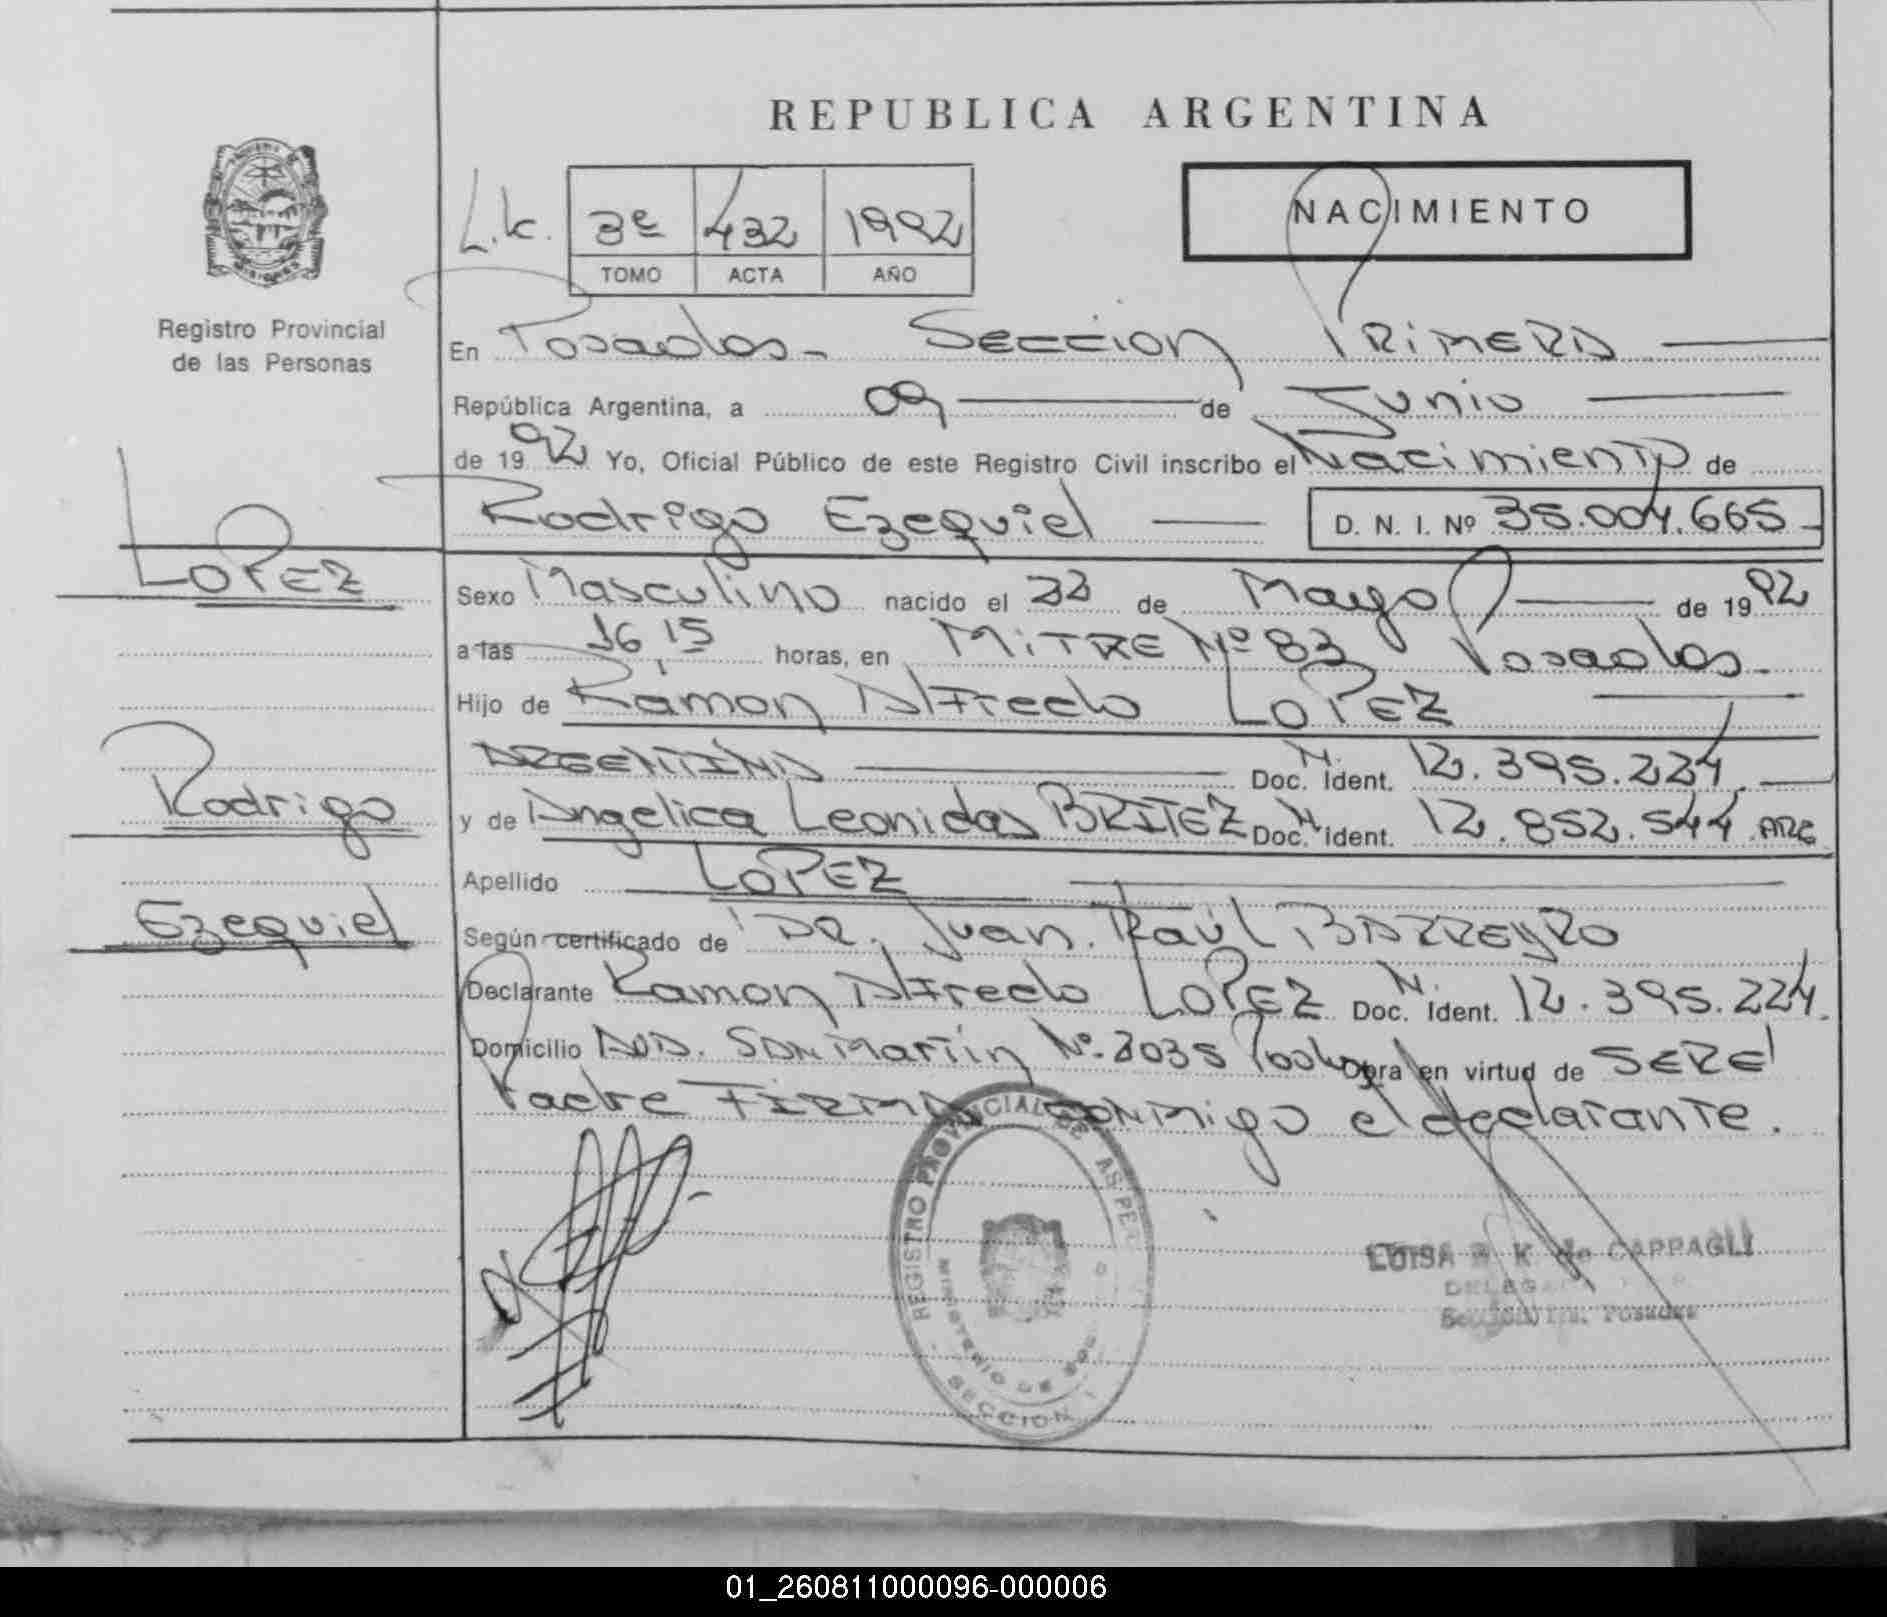 REPUBLICA ARGENTINA
NACIMIENTO
L.c. 3º 432 1992
TOMO ACTA AÑO
Registro Provincial
de las Personas
En Posadas - Seccion Primera
República Argentina, a 09 de Junio
de 1992 Yo, Oficial Público de este Registro Civil inscribo el Nacimiento de
Rodrigo Ezequiel D. N. I. Nº 35.004.665
LOPEZ
Sexo Masculino nacido el de Mayo de 1992
a las 16,15 horas, en MITRE Nº 83 Posadas
Hijo de Ramon Alfredo LOPEZ
ARGENTINO Doc. N. Ident. 12.395.224
Rodrigo
y de Angelica Leonidas BRITEZ Doc. N Ident. 12.852.544 ARG
Apellido LOPEZ
Ezequiel
Según certificado de DR. Juan Raúl BARREYRO
Declarante Ramon Alfredo LOPEZ Doc. N. Ident. 12.395.224
Domicilio AVD. SAN Martin Nº. Obra en virtud de SER el
Padre FIRMA CONMigo el declarante.
REGISTRO PROVINCIAL DE LAS PER
MINISTERIO DE
SECCION 1
LUISA K de CAPPAGLI
Posadas
01_260811000096-000006